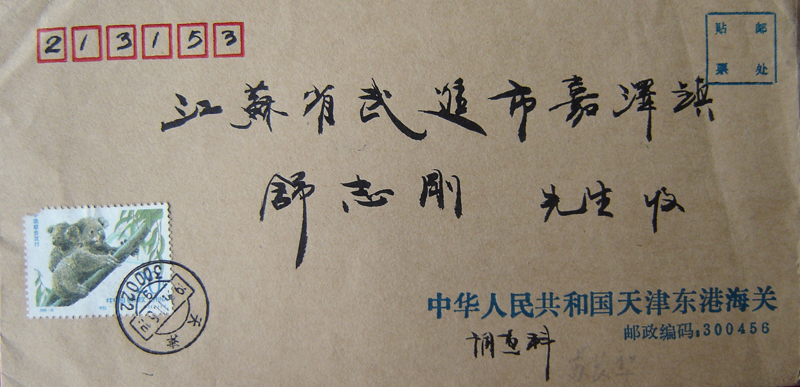 213153
贴邮
票处
江蘇省武進市嘉澤鎮
舒志剛 先生 收
300022
天津
中华人民共和国天津东港海关
邮政编码:300456
调查科